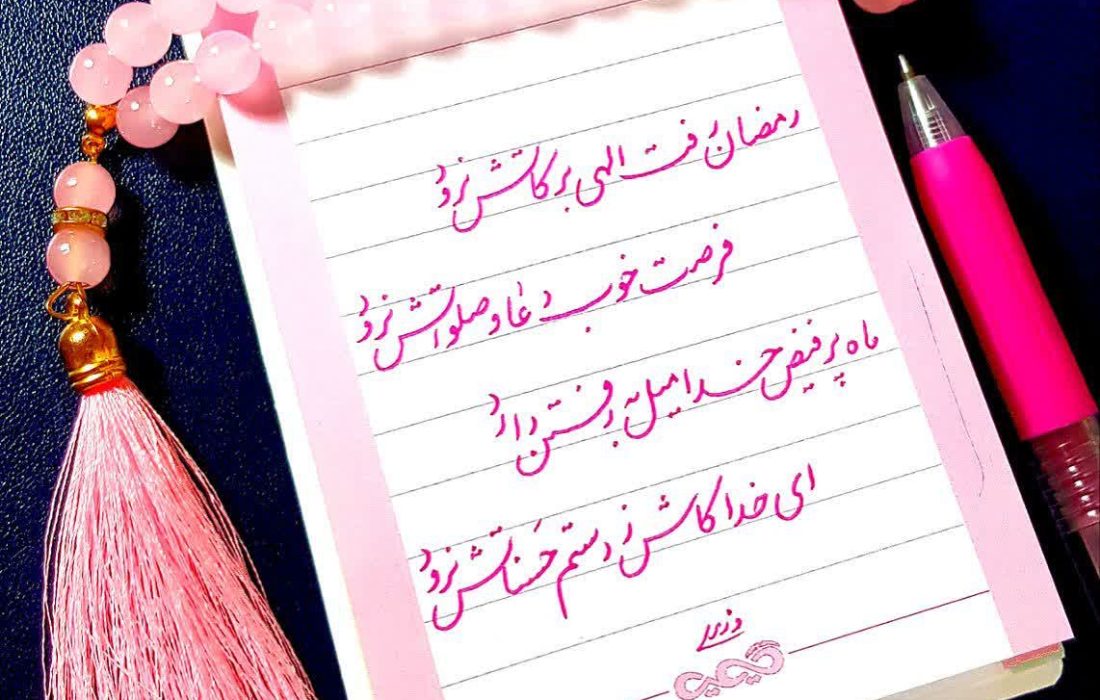 رمضان رفت الهی برکاتش نرود
فرصت خوب دعا و صلواتش نرود
ماه پر فیض خدا میل به رفتن دارد
ای خدا کاش ز دستم حَسَناتش نرود